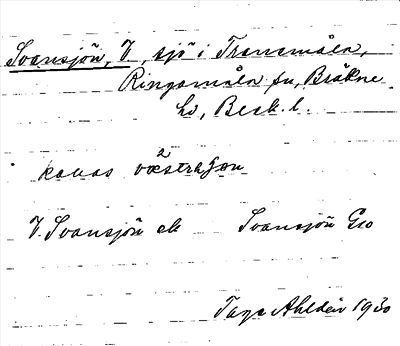 Svansjön, V., sjö i Tranamåla,
Ringamåla sn, Bräkne
hd, Blek. l.
kallas västrasjön
V. Svansjön ek Svansjön Gso
Tage Ahldén 1930